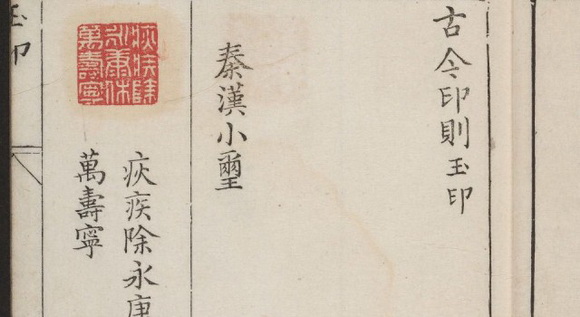 古今印則玉印
秦漢小璽
疢疾除
永康休
萬壽寧
疢疾除永康
萬壽寧
玉印